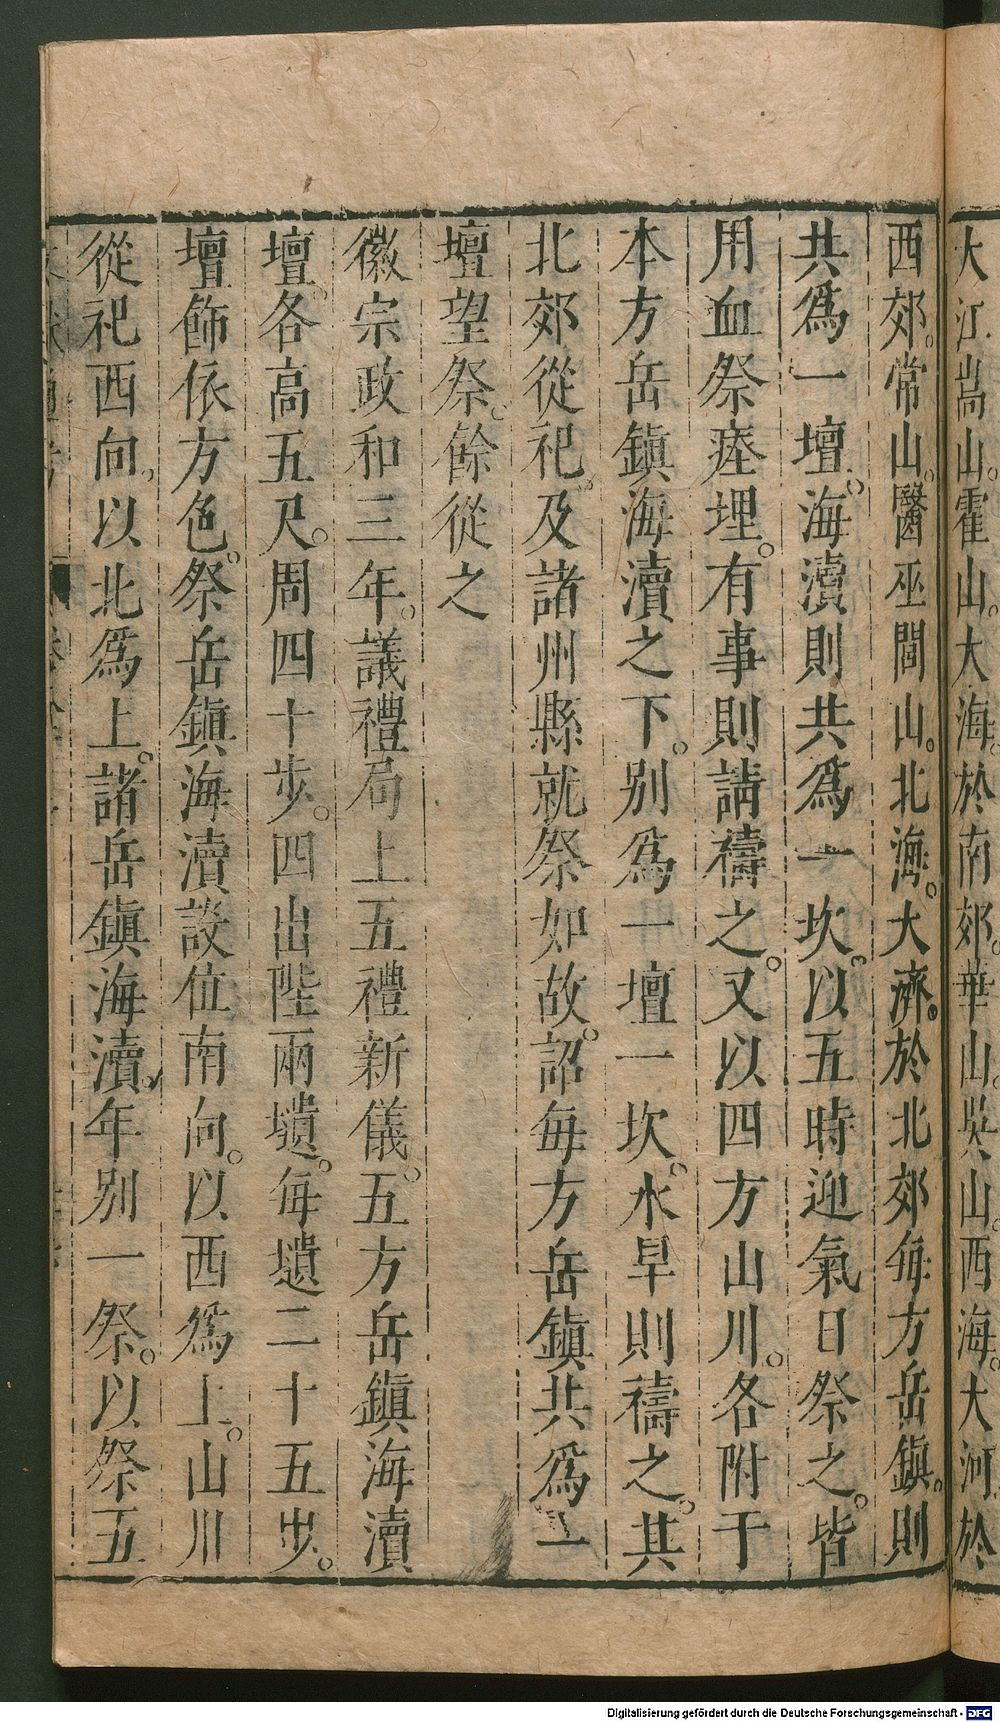 大江嵩山。霍山。大海。於南郊。華山。吳山。西海。大河於
西郊。常山。醫巫閭山。北海。大濟。於北郊每方岳鎮。則
共爲一壇。海瀆則共爲一坎。以五時迎氣日祭之。皆
用血祭瘞埋。有事則請禱之。又以四方山川。各附于
本方岳鎮海瀆之下。别爲一壇一坎。水旱則禱之。其
北郊從祀。及諸州縣就祭如故。詔每方岳鎮共爲一
壇望祭。餘從之
徽宗政和三年。議禮局上五禮新儀。五方岳鎮海瀆
壇。各高五尺。周四十步。四出陛兩壝。每壝二十五步。
壇飾依方色。祭岳鎮海瀆設位南向。以西爲上。山川
從祀西向。以北爲上。諸岳鎮海瀆。年别一祭。以祭五
Digitalisierung gefördert durch die Deutsche Forschungsgemeinschaft - DFG